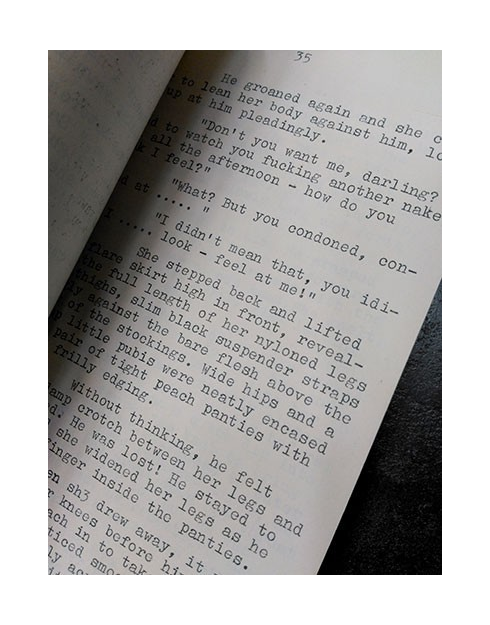 35
He groaned again and she c
to lean her body against him, lo
up at him pleadingly.
"Don't you want me, darling?
d to watch you fucking another nake
all the afternoon - how do you
k I feel?"
"What? But you condoned, con-
d at ..... "
"I didn't mean that, you idi-
I ..... look - feel at me!"
She stepped back and lifted
flare skirt high in front, reveal-
the full length of her nyloned legs
thighs, slim black suspender straps
ly against the bare flesh above the
of the stockings. Wide hips and a
p little pubis were neatly encased
pair of tight peach panties with
frilly edging.
Without thinking, he felt
lamp crotch between her legs and
d. He was lost! He stayed to
she widened her legs as he
finger inside the panties.
en sh3 drew away, it
r knees before hi
ach in to take
ticed smo
ly ac